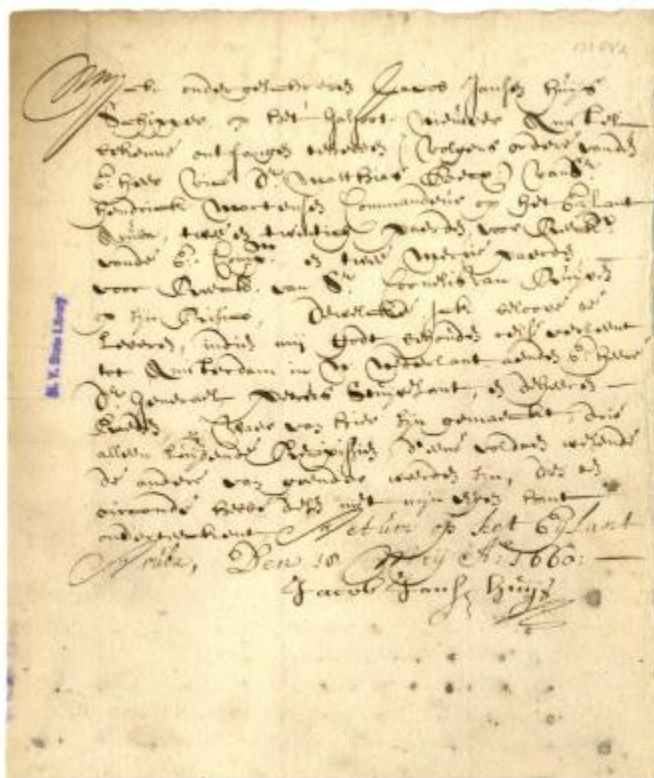 Ick ondergeschreven Jacob Jansen Huijs
Schipper op het Galjoot Nieuwer Amstel
bekenne ontfangen te hebben (volgens ordere vanden
E: Heer Vice Dr. Matthias Beck) van Sr.
Hendrick Martensen Commandeur op het Eijlant
twee en twintich paerden, voor Reeck:
vande E: Comp: en twee paerden
voor Reeck: van Sr. Cornelis van Ruijven
op zijn Risico, Dewelcke Ick belove te
Leveren, indien mij Godt behouden reijse verleent
tot Amsterdam in N: Nederlant aenden E: Heere
Dr. Generael Petrus Stuijvesant, en de heeren
Raden, Waer van hier zijn gemaeckt drie
alleen Recipissen d'eene voldaen wesende
de andere van geender weerden zijn, des ten
oirconde hebbe dese met mijn eijgen hant
onderteeckent Actum op het Eijlant
Aruba, Den 18 Meij Ao: 1660:
Jacob Jansz Huijs
N. Y. State Library